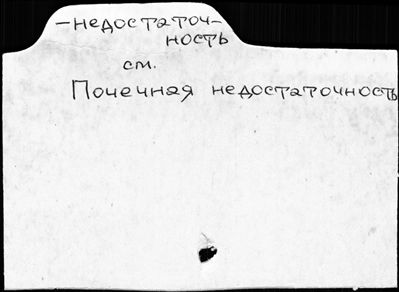 —недостаточ-
ность
см.
Почечная недостаточность